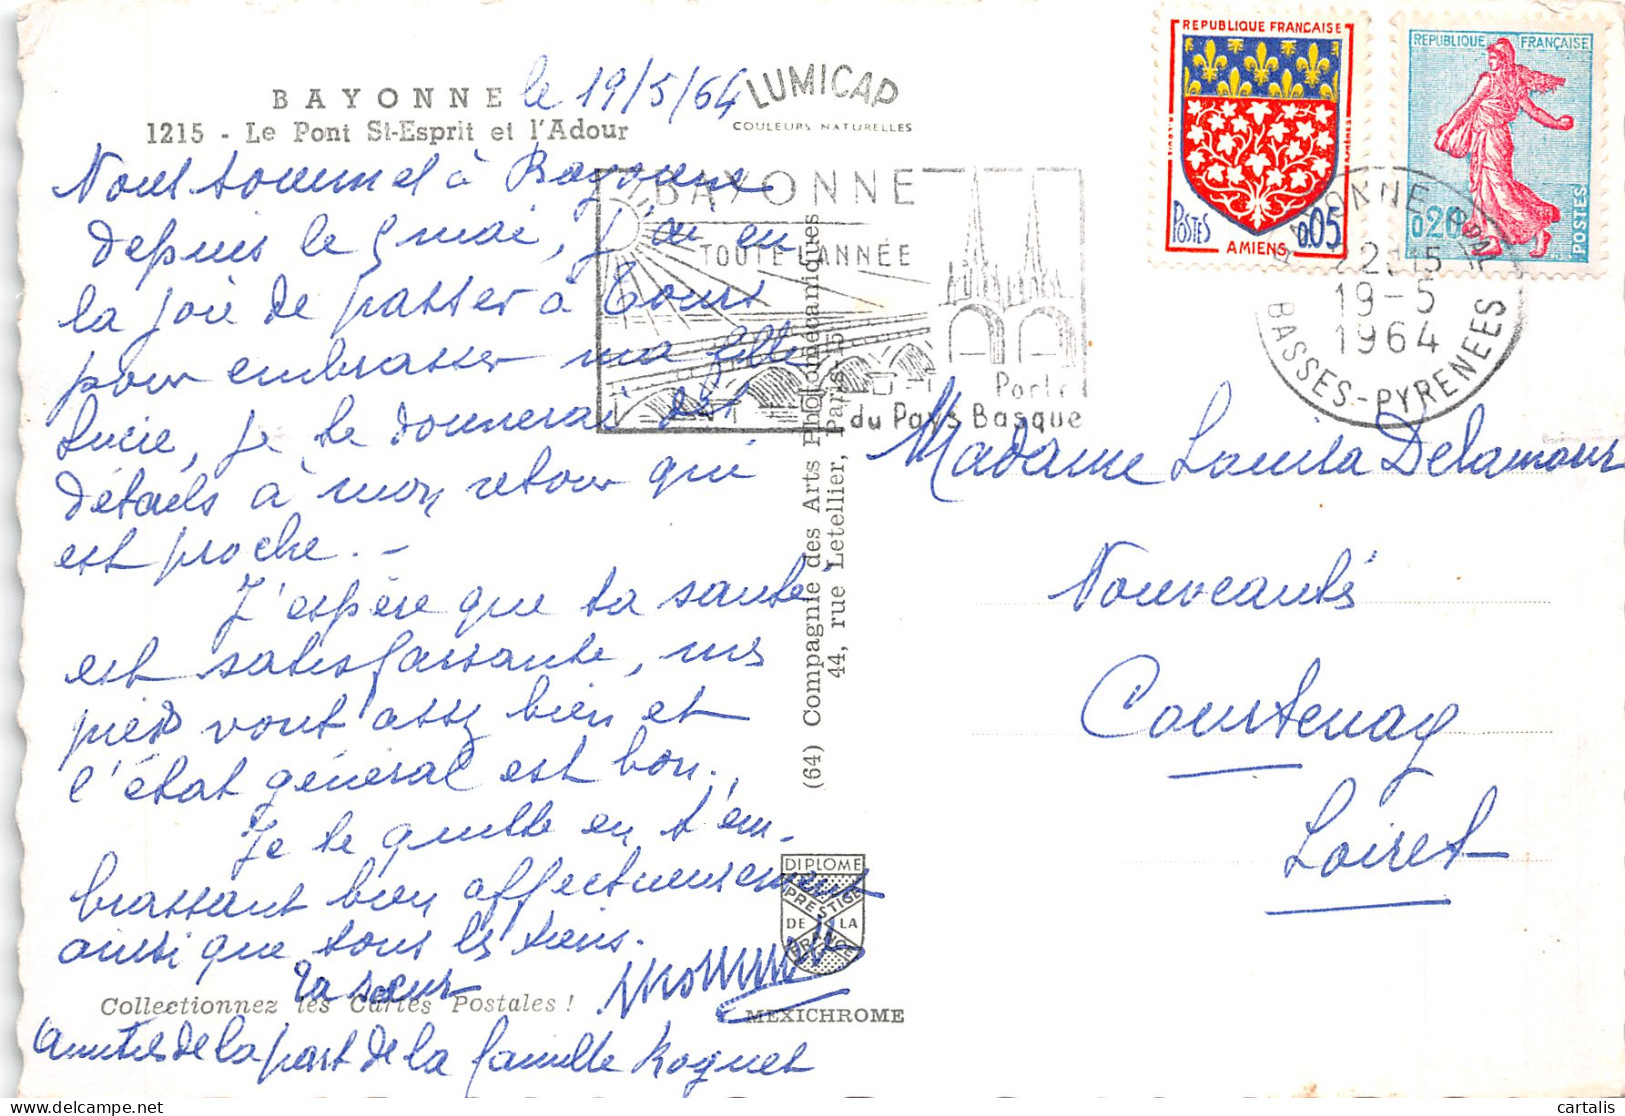 BAYONNE le 19/5/64
1215 - Le Pont St-Esprit et l'Adour
LUMICAP
COULEURS NATURELLES
Nous sommes à Bayonne
depuis le 5 mai, j'ai eu
la joie de passer à Tours
pour embrasser ma fille
Lucie, je te donnerai des
détails à mon retour qui
est proche. -
J'espère que ta santé
est satisfaisante, mes
pieds vont assez bien et
l'état général est bon.
Je te quitte en t'em-
brassant bien affectueusement
ainsi que tous les tiens.
Ta sœur
Amitiés de la part de la famille Roquet
Collectionnez les Cartes Postales !
MEXICHROME
DIPLOME
PRESTIGE
DE LA
FRANCE
(64) Compagnie des Arts Photomécaniques
44, rue Letellier, Paris-15
BAYONNE
TOUTE L'ANNÉE
Porte
du Pays Basque
REPUBLIQUE FRANCAISE
POSTES
0,05
AMIENS
REPUBLIQUE FRANÇAISE
0,20
POSTES
BAYONNE
22H15
19-5
1964
BASSES-PYRENEES
Madame Louisa Delamour
Nouveautés
Courtenay
Loiret
cartalis